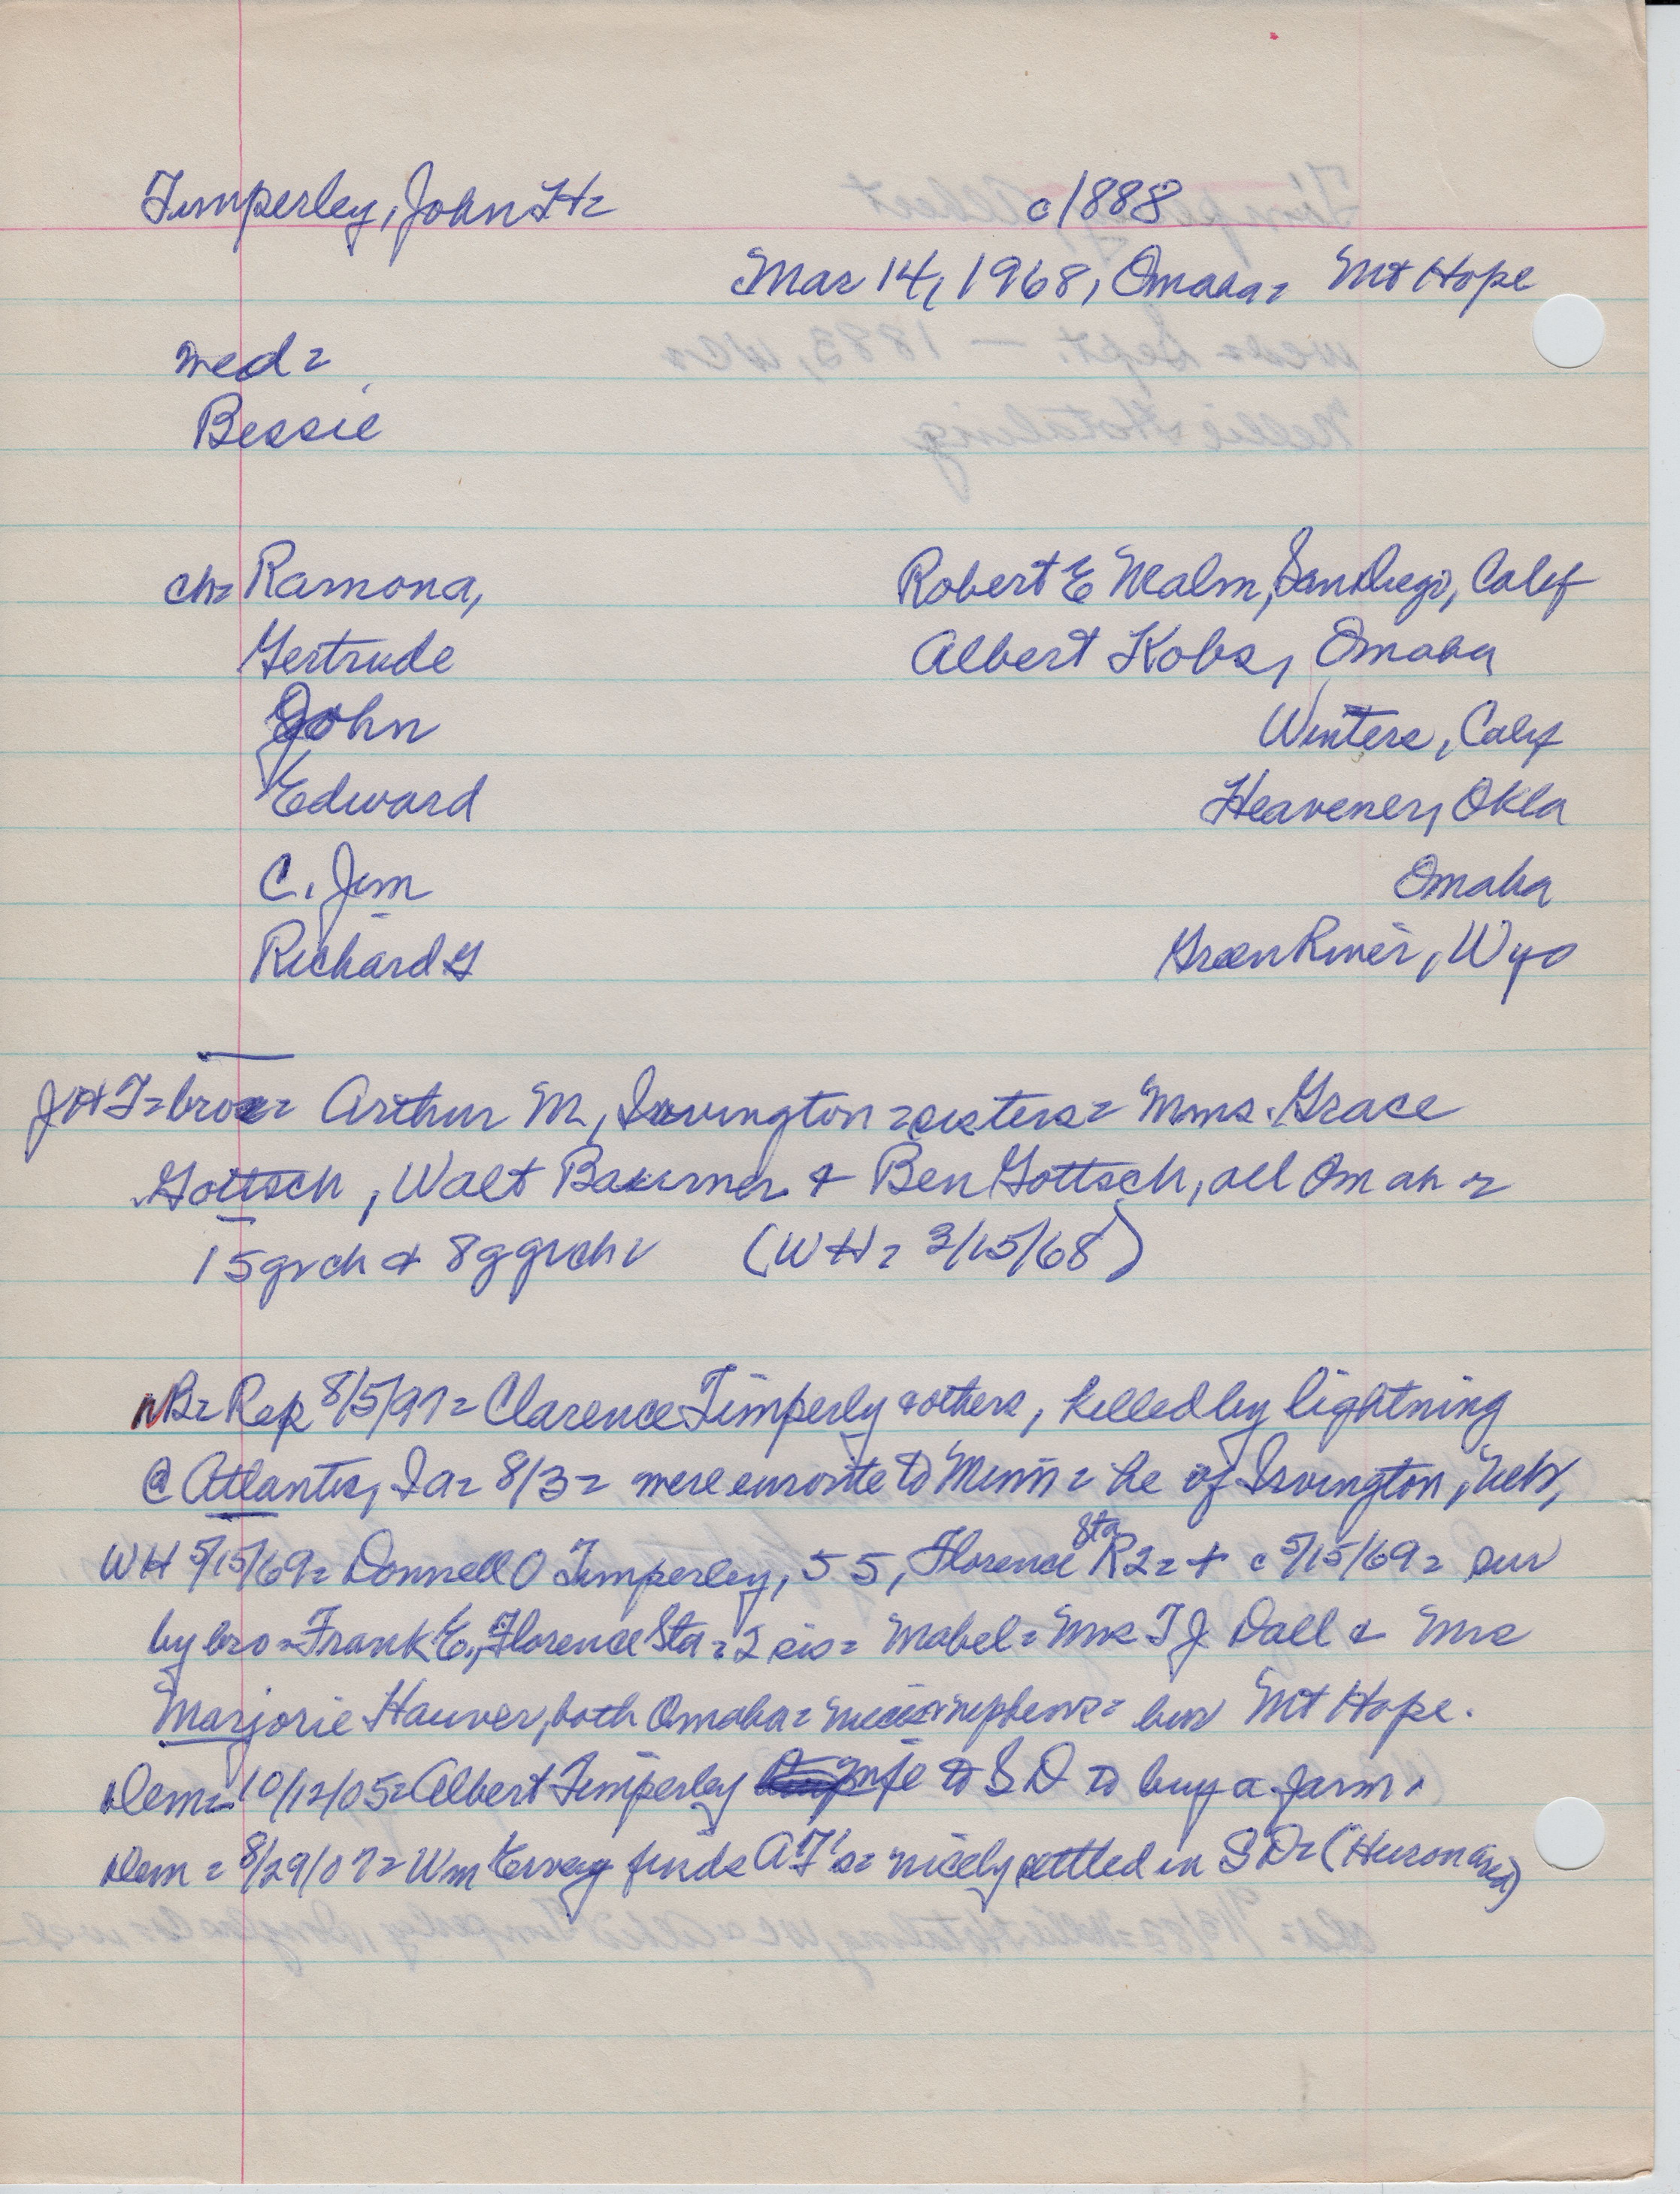 Timperley, John H= c1888
Mar 14, 1968, Omaha= Mt Hope
wed=
Bessie
ch= Ramona, Robert E Malm, San Diego, Calif
Gertrude Albert Kobs, Omaha
John Winters, Calif
Edward Heavener, Okla
C. Jim Omaha
Richard G Green River, Wyo
JHT=bro= Arthur M, Irvington =sisters= Mms. Grace
Gottsch, Walt & Ben Gottsch, all Omah=
15grch & 8ggrch (WH= 3/15/68)
NB= Rep 8/5/97= Clarence Timperly & others, killed by lightning
@ Atlantic, Ia= 8/3= were enroute to Minn= he of Irvington, Neb,
WH 5/15/69= Donnell O Timperley, 55, Florence Sta R2= + c5/15/69= sur
by bro=Frank E., Florence Sta=2 sis= Mabel= Mrs T J Dall & Mrs
Marjorie Hauver, both Omaha= nieces nephews= bur Mt Hope.
Dem= 10/12/05=Albert Timperley to S D to buy a farm.
Dem= 8/29/07= Wm Ervay finds AT's= nicely settled in S D= (Huron area)